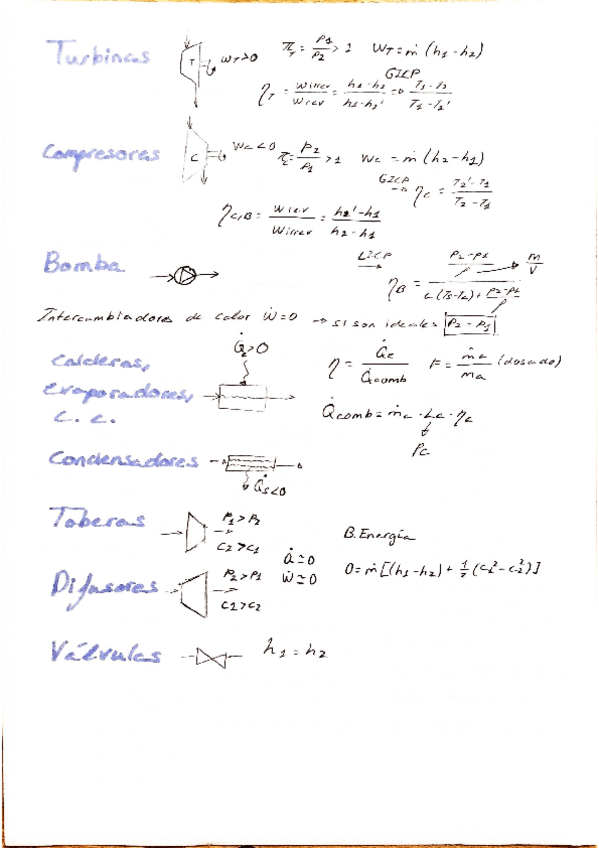 Turbinas T ẇ_T>0 π_T = P1/P2 > 1 Ẇ_T = ṁ (h1-h2)
η_T = w irrev / w rev = (h1-h2)/(h1-h2') GICP → (T1-T2)/(T1-T2')
Compresores C Wc<0 π_c = P2/P1 >1 Wc = ṁ (h2-h1)
GICP → η_c = (T2'-T1)/(T2-T1)
η_C,B = W rev / W irrev = (h2'-h1)/(h2-h1)
Bomba LICP → η_B
P2-P1 m/V
Intercambiadores de calor Ẇ=0 → si son ideales P2-P1
Calderas,
evaporadores,
c. c.
Q̇e>0 η = Q̇e/Q̇comb F = ṁc/ṁa (dosado)
Q̇comb = ṁc · Lc · ηc
Pc
Condensadores Q̇s<0
Toberas P1>P2 C2>C1
B. Energía
Q̇=0 Ẇ=0
0=ṁ[(h1-h2)+ 1/2 (c1²-c2²)]
Difusores P2>P1 C1>C2
Válvulas h1 = h2